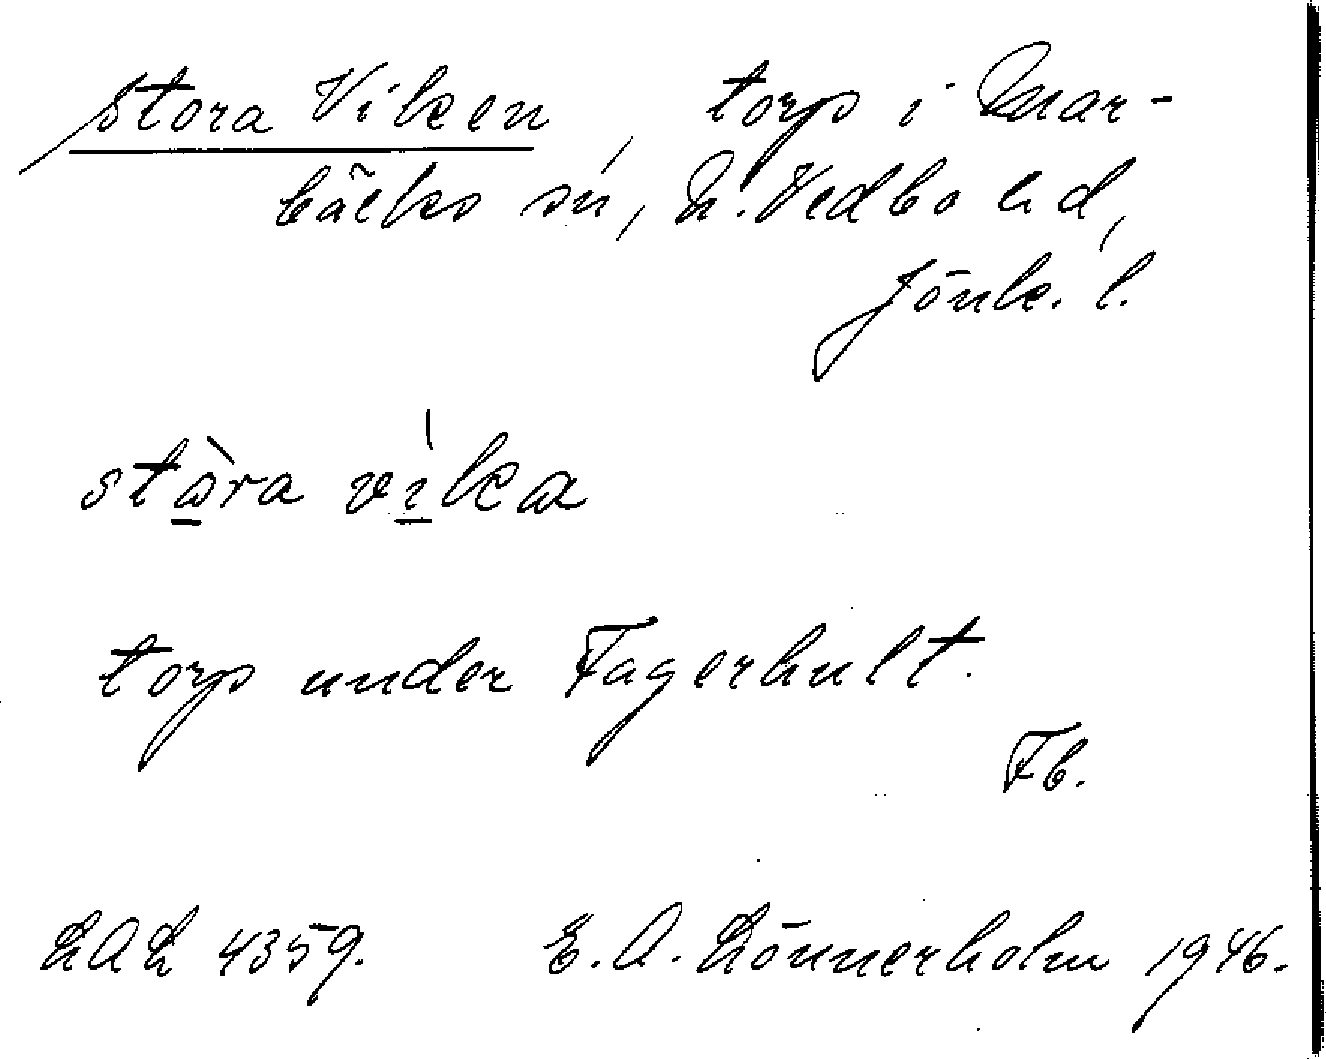 Stora Viken, torp i Mar-
bäcks sn, N. Vedbo hd,
Jönk. l.
stòra víka
torp under Fagerhult.
Fb.
LAL 4359. E. A. Lönnerholm 1946.